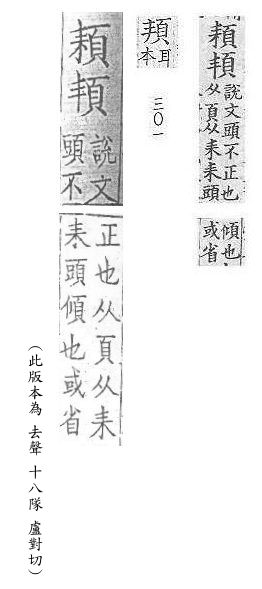 頛
說文頭不正也
从頁从耒耒頭
傾也
或省
耳
本
三〇一
頛
說文
頭不
正也从頁从耒
耒頭傾也或省
(此版本為 去聲 十八隊 盧對切)